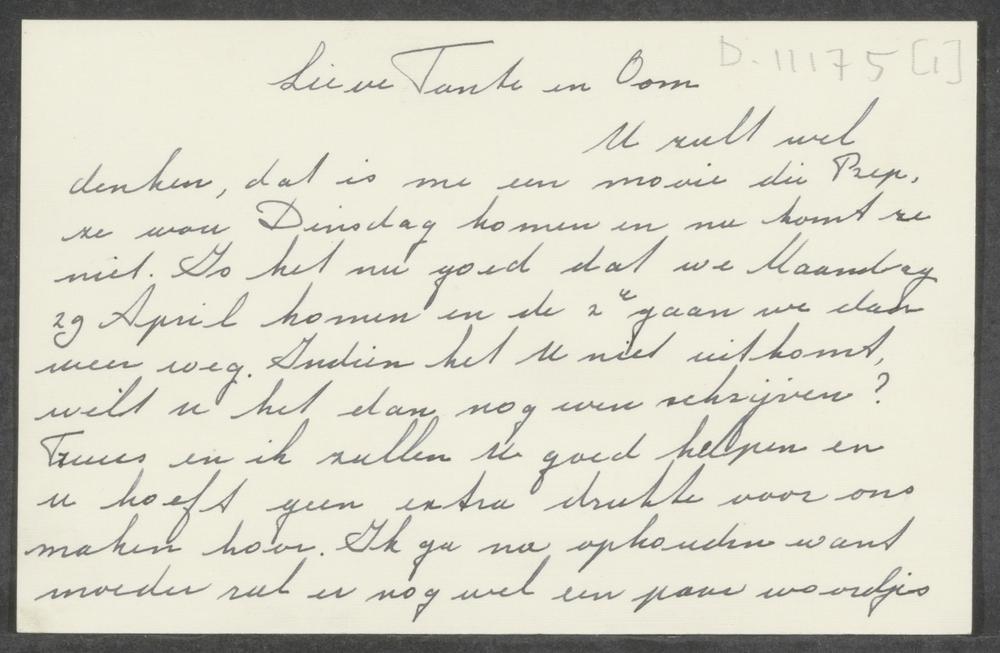 D. 11175 [1]
Lieve Tante en Oom
U zult wel
denken, dat is me een mooie die Piep,
ze wou Dinsdag komen en nu komt ze
niet. Is het nu goed dat we Maandag
29 April komen en de 2e gaan we dan
weer weg. Indien het U niet uitkomt,
wilt u het dan nog even schrijven?
Truus en ik zullen U goed helpen en
u hoeft geen extra drukte voor ons
maken hoor. Ik ga nu ophouden want
moeder zal er nog wel een paar woordjes